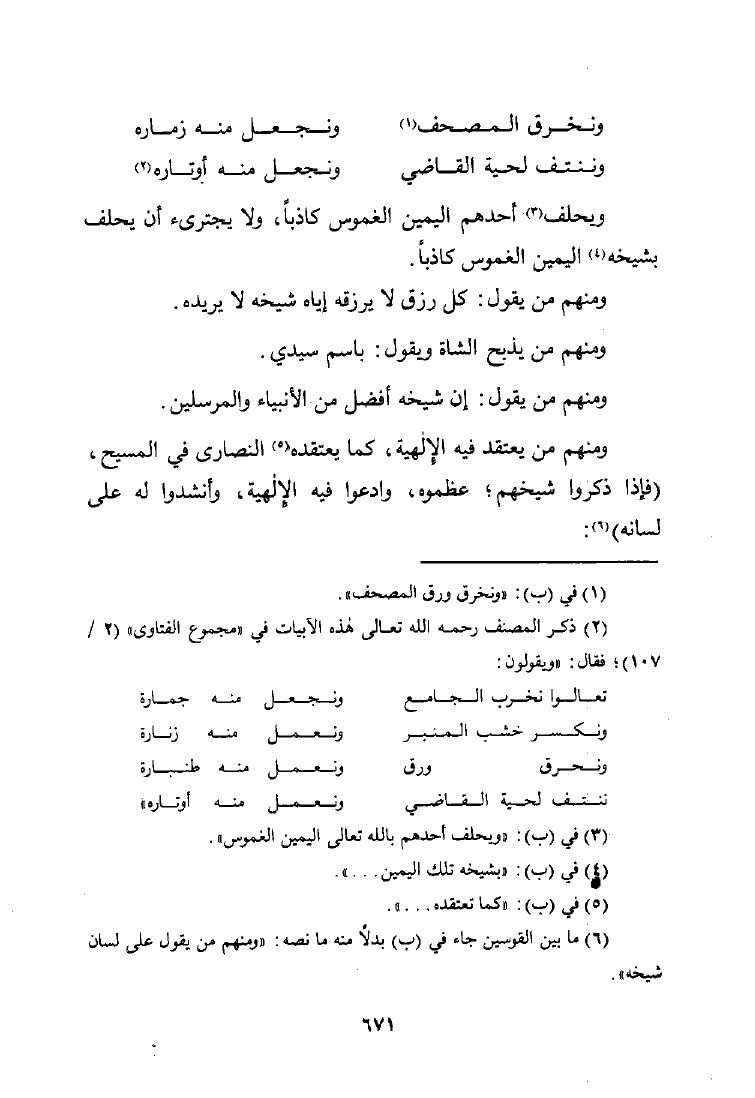 ونخرق المصحف(١) ونجعل منه زماره
وننتف لحية القاضي ونجعل منه أوتاره(٢)
ويحلف(٣) أحدهم اليمين الغموس كاذباً، ولا يجترىء أن يحلف
بشيخه(٤) اليمين الغموس كاذباً.
ومنهم من يقول: كل رزق لا يرزقه إياه شيخه لا يريده.
ومنهم من يذبح الشاة ويقول: باسم سيدي.
ومنهم من يقول: إن شيخه أفضل من الأنبياء والمرسلين.
ومنهم من يعتقد فيه الإلٰهية، كما يعتقده(٥) النصارى في المسيح،
(فإذا ذكروا شيخهم؛ عظموه، وادعوا فيه الإلٰهية، وأنشدوا له على
لسانه)(٦):
(١) في (ب): «ونخرق ورق المصحف».
(٢) ذكر المصنف رحمه الله تعالى هٰذه الأبيات في «مجموع الفتاوى» (٢ /
١٠٧)؛ فقال: «ويقولون:
تعالوا نخرب الجامع ونجعل منه جمارة
ونكسر خشب المنبر ونعمل منه زنارة
ونحرق ورق ونعمل منه طنبارة
ننتف لحية القاضي ونعمل منه أوتاره»
(٣) في (ب): «ويحلف أحدهم بالله تعالى اليمين الغموس».
(٤) في (ب): «بشيخه تلك اليمين...».
(٥) في (ب): «كما تعتقده...».
(٦) ما بين القوسين جاء في (ب) بدلاً منه ما نصه: «ومنهم من يقول على لسان
شيخه».
٦٧١